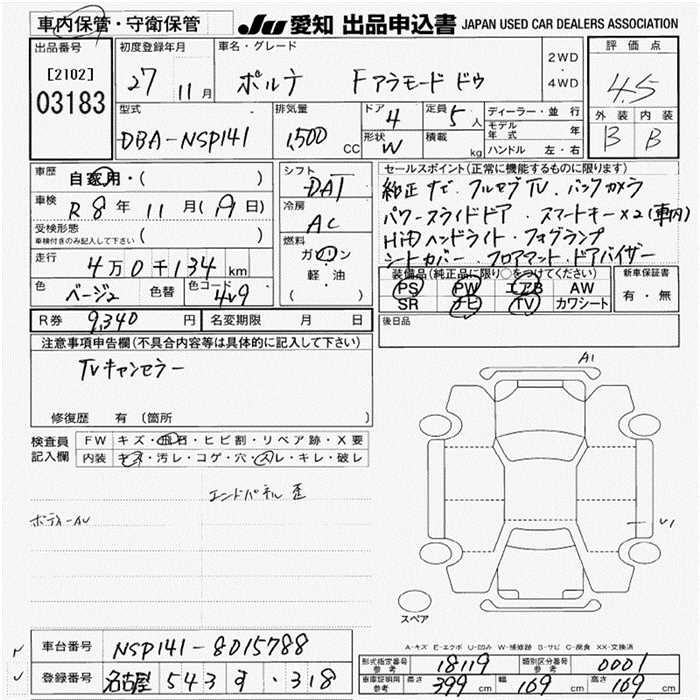 車内保管・守衛保管
JU 愛知 出品申込書 JAPAN USED CAR DEALERS ASSOCIATION
出品番号
[2102]
03183
初度登録年月
27 11月
車名・グレード
ポルテ Fアラモード ドゥ
2WD
・
4WD
評価点
4.5
外装 内装
B B
型式
DBA-NSP141
排気量
1,500 CC
ドア
4
形状
W
定員
5人
積載
kg
ディーラー・並行
モデル年式 年
ハンドル 左・右
車歴 自家用・( )
車検 R8年 11月(19日)
受検形態
車検付きのみ記入して下さい ( )
走行 4万0千134km
色 ベージ2 色替 色コード 4V9
シフト
DAT
冷房
AC
燃料
ガソリン
軽・油
( )
セールスポイント(正常に機能するものに限ります)
純正ナビ・フルセグTV・バックカメラ
パワースライドドア・スマートキー×2(車内)
HiDヘッドライト・フォグランプ
シートカバー・フロアマット・ドアバイザー
装備品(純正品に限り○をつけてください)
PS PW エアB AW
SR ナビ TV カワシート
新車保証書
有・無
R券 9,340円 名変期限 月 日
後日品
注意事項申告欄(不具合内容等は具体的に記入して下さい)
TVキャンセラー
修復歴 有(箇所
検査員記入欄
FW キズ・飛石・ヒビ割・リペア跡・X要
内装 キズ・汚レ・コゲ・穴・スレ・キレ・破レ
エンドパネル歪
A1
U1
スペア
A-キズ E-エクボ U-凹み W-補修跡 S-サビ C-腐食 XX-交換済
車台番号 NSP141-8015788
登録番号 名古屋 543 す・318
形式指定番号 参考 18119 類別区分番号 参考 0001
車庫証明用 参考 長さ 399cm 幅 169cm 高さ 169cm